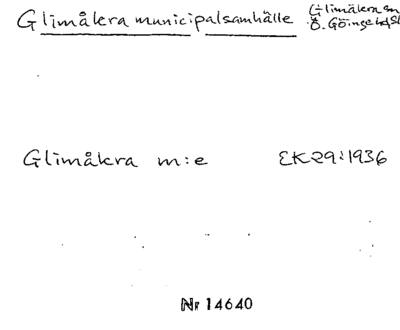 Glimåkra municipalsamhälle
Glimåkra sn
Ö. Göinge hd
Glimåkra m:e EK29:1936
Nr 14640